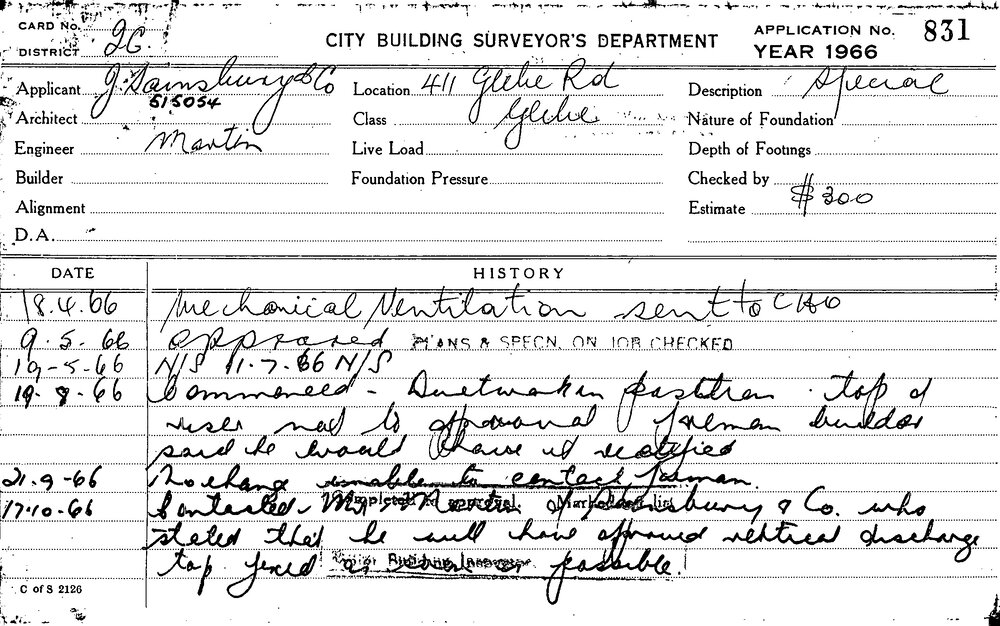 CARD No.
DISTRICT 2G.
CITY BUILDING SURVEYOR'S DEPARTMENT
APPLICATION No. 831
YEAR 1966
Applicant J. Sainsbury & Co
515054
Location 411 Glebe Rd
Description Special
Architect
Class Glebe
Nature of Foundation
Engineer Martin
Live Load
Depth of Footings
Builder
Foundation Pressure
Checked by
Alignment
Estimate $300
D.A.
DATE HISTORY
18.4.66 Mechanical Ventilation sent to CHO
9.5.66 approved PLANS & SPECN. ON JOB CHECKED
19-5-66 N/S 11.7.66 N/S
19.8.66 Commenced - Ductwork in position top of
riser not to approval foreman builder
said he would have it rectified
21.9-66 No change unable to contact foreman.
17.10.66 Contacted Mr Martin of Sainsbury & Co. who
stated that he will have approved vertical discharge
top fixed as soon as possible.
C of S 2126